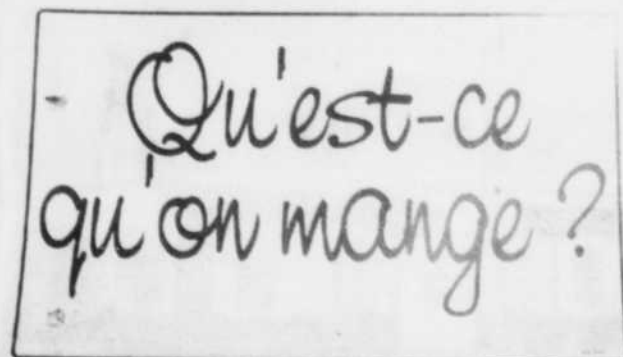 Qu'est-ce
qu'on mange ?